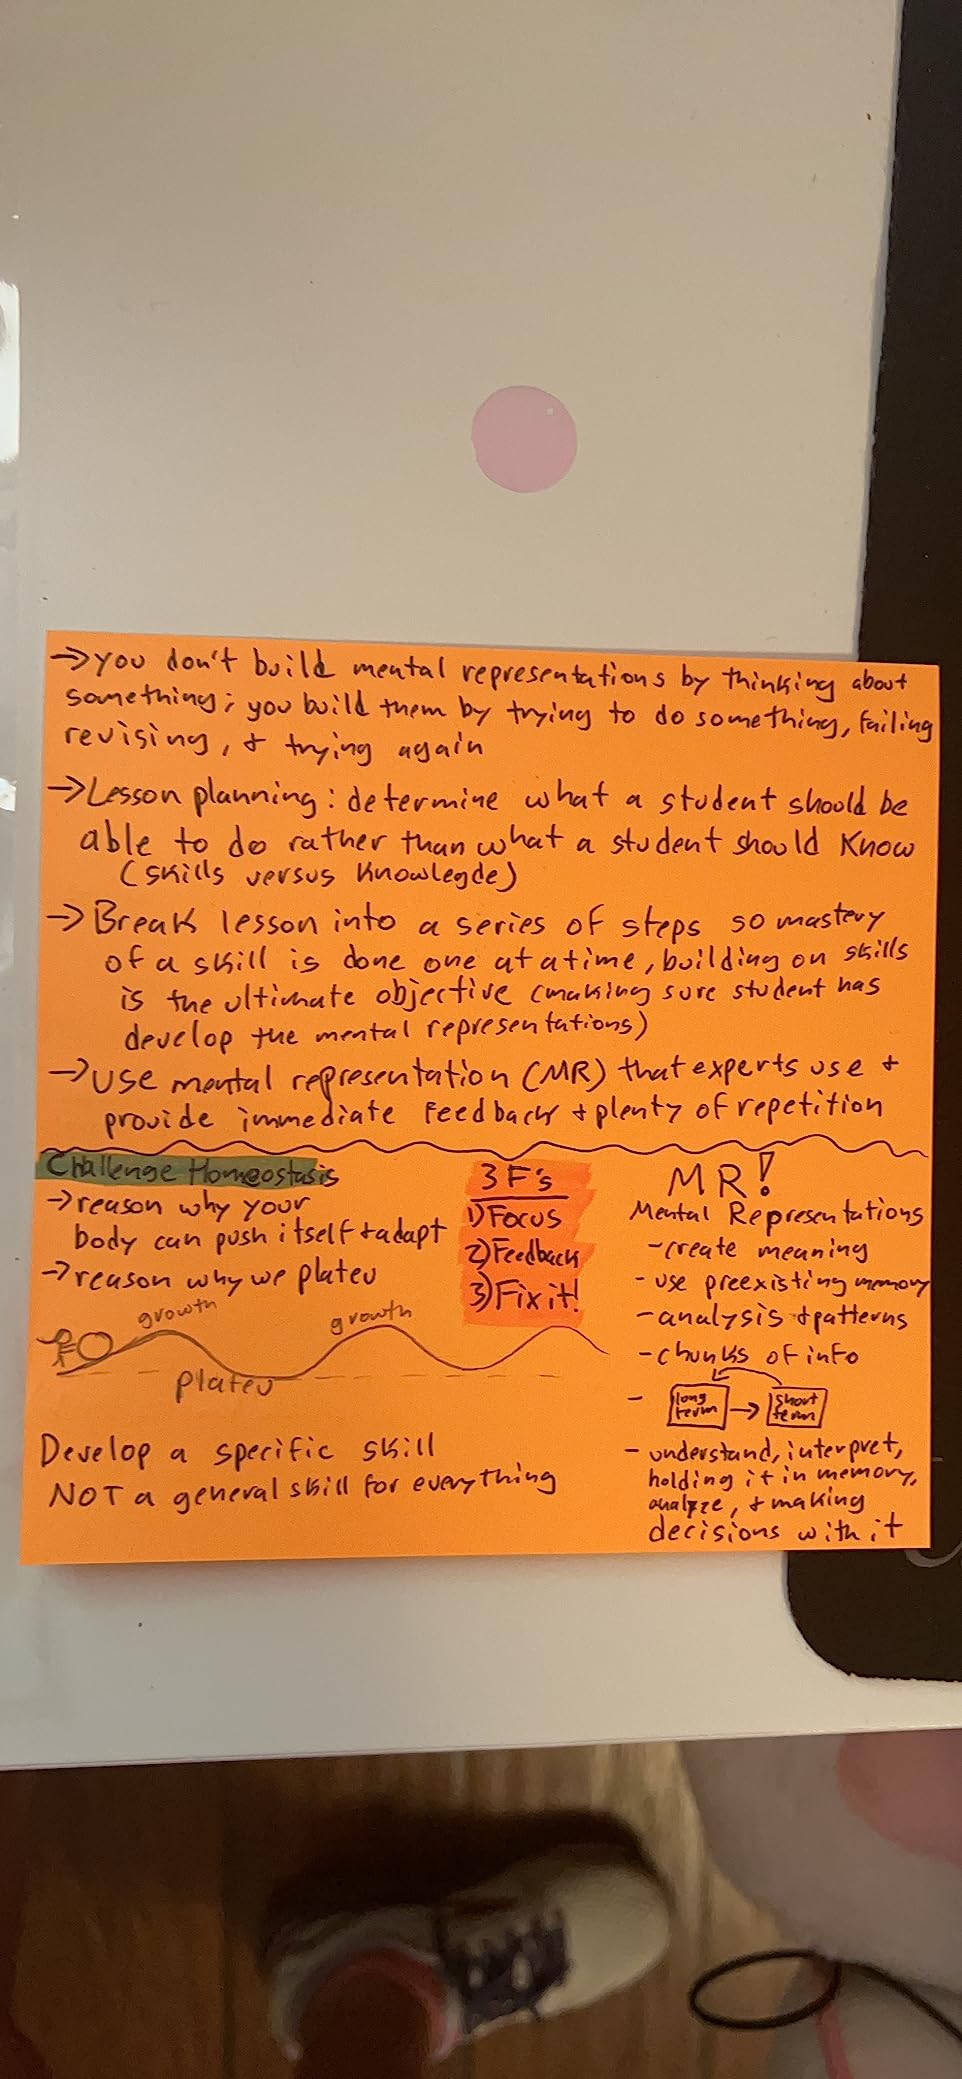 → you don't build mental representations by thinking about
something; you build them by trying to do something, failing
revising, + trying again
→ Lesson planning: determine what a student should be
able to do rather than what a student should know
(skills versus knowlegde)
→ Break lesson into a series of steps so mastery
of a skill is done one at a time, building on skills
is the ultimate objective (making sure student has
develop the mental representations)
→ Use mental representation (MR) that experts use +
provide immediate feedback + plenty of repetition
Challenge Homeostasis
→ reason why your
body can push itself + adapt
→ reason why we plateu
growth
growth
plateu
Develop a specific skill
NOT a general skill for everything
3 F's
1) Focus
2) Feedback
3) Fix it!
MR!
Mental Representations
- create meaning
- use preexisting memory
- analysis + patterns
- chunks of info
- long term → short term
- understand, interpret,
holding it in memory,
analyze, + making
decisions with it